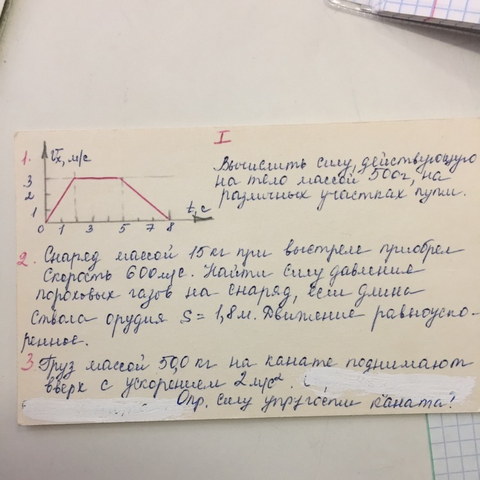 I
1.
Vx, м/с
3
2
1
0 1 3 5 7 8
t, с
Вычислить силу, действующую
на тело массой 500г, на
различных участках пути.
2. Снаряд массой 15 кг при выстреле приобрел
скорость 600м/с. Найти силу давления
пороховых газов на снаряд, если длина
ствола орудия S = 1,8м. Движение равноуско-
ренное.
3. Груз массой 50,0 кг на канате поднимают
вверх с ускорением 2 м/с².
Опр. силу упругости каната?